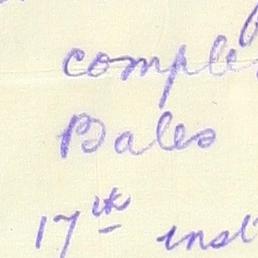 comple
Bales
17th inst